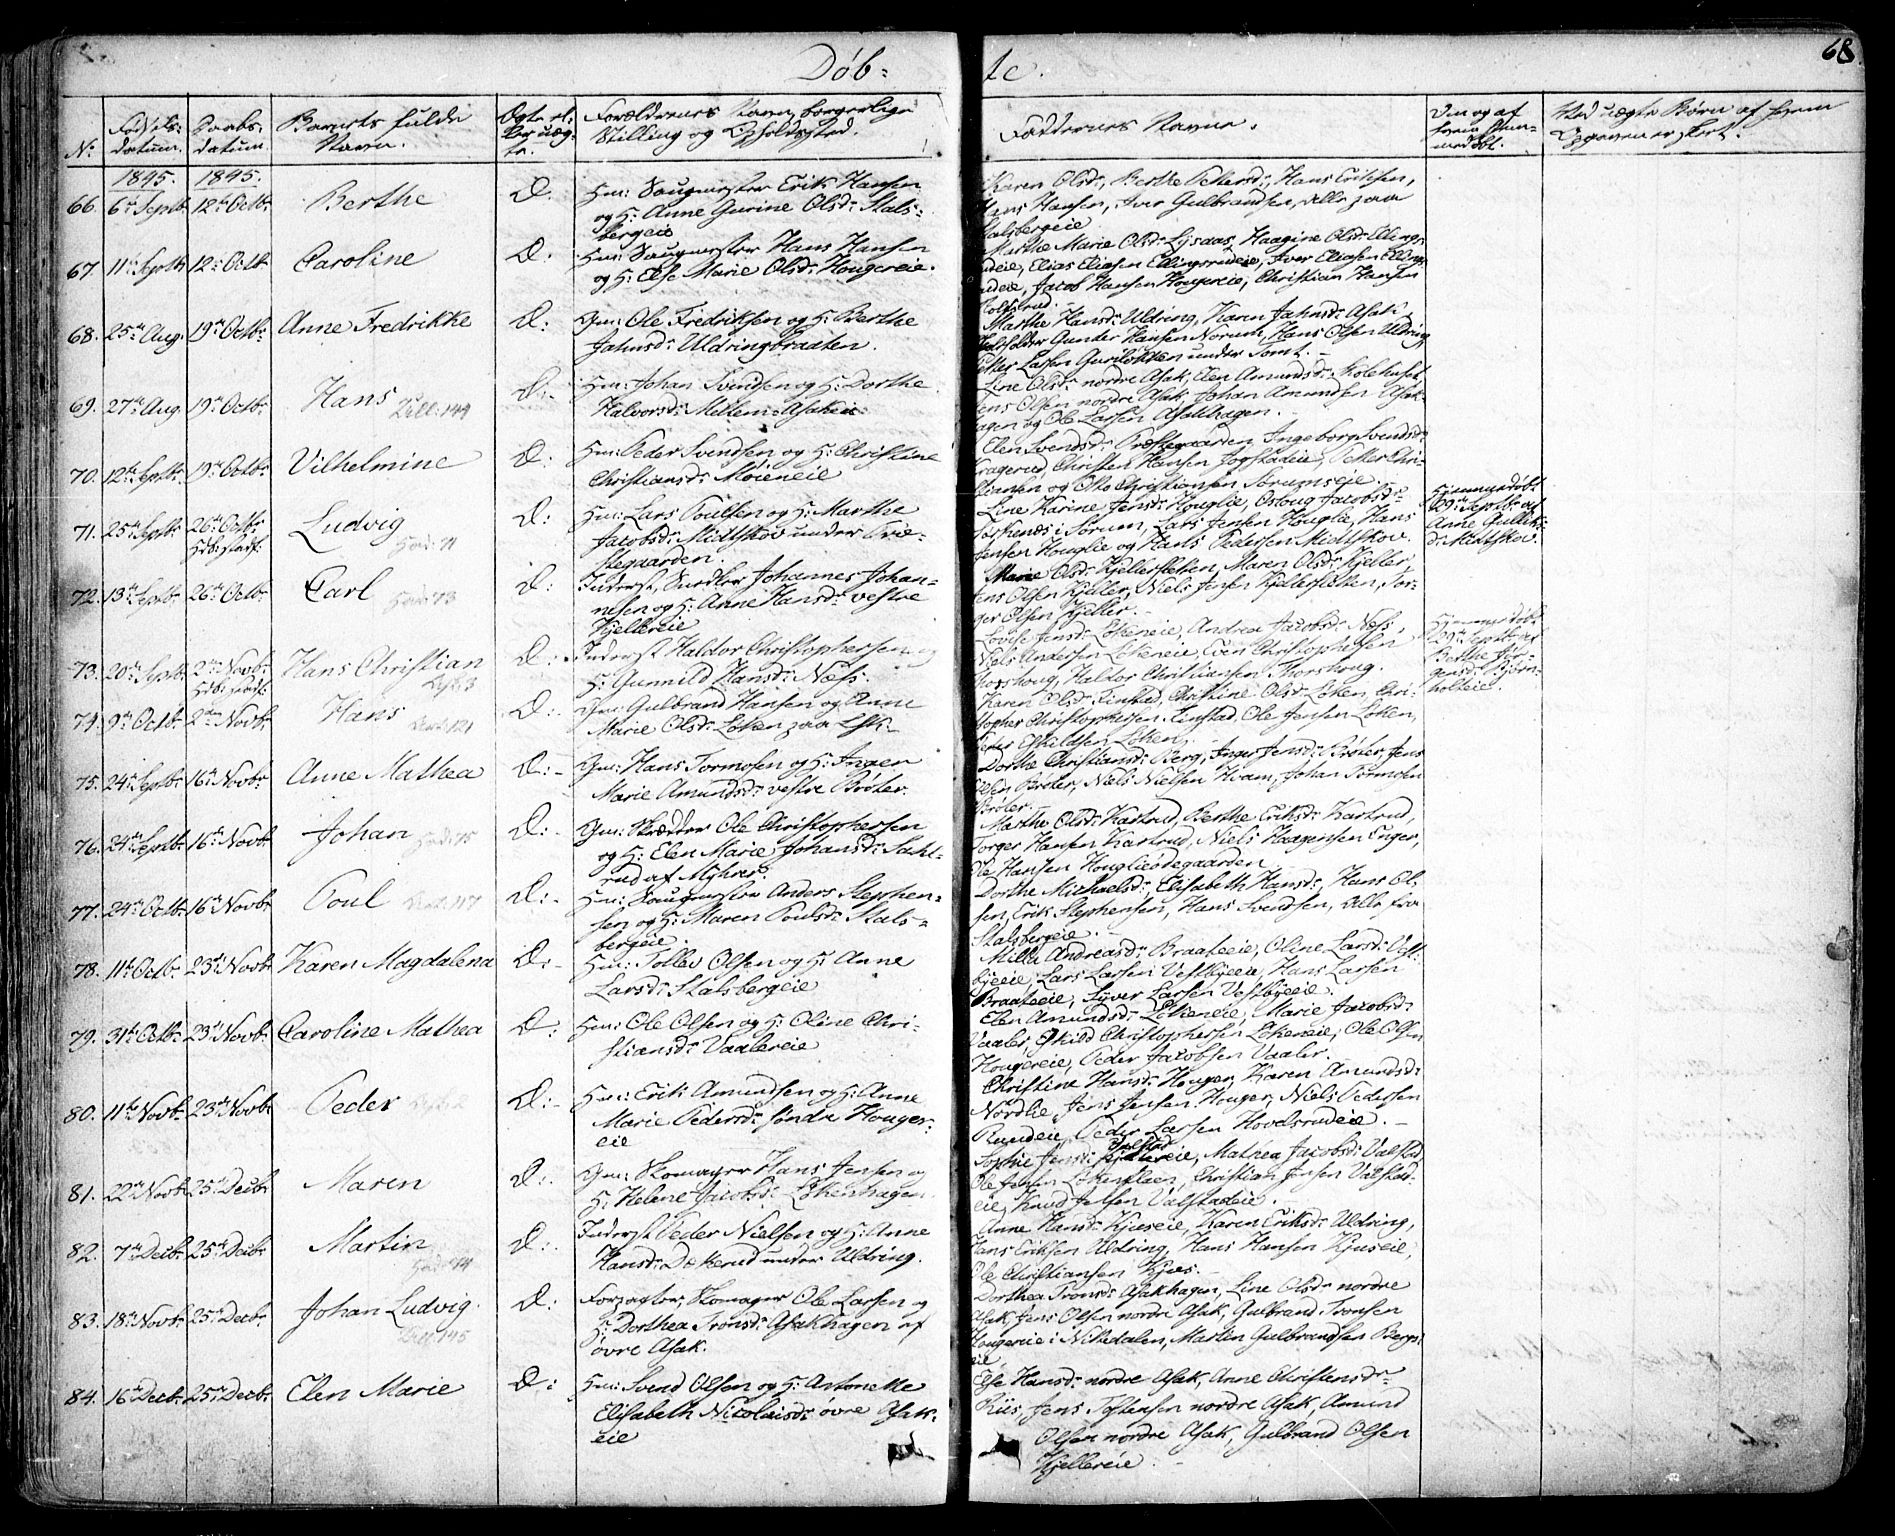 68
Døbte.
No
Fødsels-
datum.
Daabs-
datum.
Barnets fulde
Navn.
Ægte el-
ler uæg-
te.
Forældrenes Navn, borgerlige
Stilling og Opholdssted.
Faddernes Navne.
Ved uægte Børn af hvem
Opgaven er skeet.
1845. 1845.
66. 6te Septb: 12te Octb: Berthe Æ: Hm: Saugmester Erik Hansen
og H: Anne Gurine Olsd: Stals-
bergeie
Karen Olsd:, Berthe Pettersd:, Hans Eriksen,
Hans Hansen, Iver Gulbrandsen, alle paa
Stalsbergeie
67. 11te Septb: 12te Octb: Caroline Æ: Hm: Saugmester Hans Hansen
og H: Else Marie Olsd: Hougereie.
Marthe Marie Olsd: Lysaas, Haagine Olsd: Ellings-
rudeie, Elias Eliasen Ellingsrudeie, Iver Eliasen Ellings-
rudeie, Jacob Hansen Hougereie, Christian Hansen
68. 25de Aug. 19de Octb: Anne Fredrikke Æ: Gm: Ole Fredriksen og H: Berthe
Jahnsd: Uldringbraaten.
Marthe Hansd: Uldring, Karen Jahnsd: Asak,
Gunder Hansen Norum, Hans Olsen Uldring
Petter Larsen under Tomt.
69. 27de Aug. 19de Octb: Hans Æ: Hm: Johan Svendsen og H: Dorthe
Halvorsd: Mellem-Asakeie
Line Olsd: nordre Asak, Elen Amundsd: Skolehuset,
Jens Olsen nordre Asak, Johan Amundsen Asak-
hagen og Ole Larsen Asakhagen.
70. 12te Septb: 19de Octb: Vilhelmine Æ: Hm: Peder Svendsen og H: Christine
Christiansd: Moieneie
Elen Svendsd: Præstegaarden, Ingeborg Svendsd:
Kragerud, Christen Hansen Jogstadeie, Petter Chri-
stiansen og Otto Christiansen Sørumseie.
71. 25de Septb: 26de Octb: Ludvig Æ: Hm: Lars Poulsen og H: Marthe
Jacobsd: Midtskov under Præ-
stegaarden.
Line Karine Jensd: Houglie, Osloug Jacobsd:
i Sørum, Lars Jensen Houglie, Hans
Jensen Houglie og Hans Pedersen Midtskov.
Hjemmedøbt
29de Septb: af
Anne Gulbr:
d: Midtskov.
72. 13de Septb: 26de Octb: Carl Æ: Inderst, Snedker Johannes Johan-
nesen og H: Anne Hansd: vestre
Kjellereie
Marie Olsd: Kjellersletten, Maren Olsd: Kjeller,
Jens Olsen Kjeller, Niels Jensen Kjellersletten, Tor-
ger Olsen Kjeller.
73. 20de Septb: 2den Novb: Hans Christian Æ: Inderst Haldor Christophersen og
H: Gunnild Hansd: Næss.
Lovise Jensd: Løkeneie, Andrea Jacobsd: Næss,
Niels Andersen Løkeneie, Christophersen
Thorshoug, Haldor Christiansen Thorshoug.
Hjemmedøbt
29de Septb: af
Berthe Jør-
gensd: Bjørn-
holteie.
74. 9de Octb: 2den Novb: Hans Æ: Gm: Gulbrand Hansen og Anne
Marie Olsd: Løken paa Eik.
Karen Olsd: Finstad, Christine Olsd: Løken, Chri-
stopher Christophersen Finstad, Ole Jensen Løken,
Peder Eskildsen Løken.
75. 24de Septb: 16de Novb: Anne Mathea Æ: Gm: Hans Tormosen og H: Inger
Marie Amundsd: vestre Brøter.
Dorthe Christiansd: Berg, Inger Jensd: Brøter, Jens
Olsen Brøter, Niels Nielsen Hvam, Johan Tormosen
Brøter.
76. 24de Septb: 16de Novb: Johan Æ: Gm: Skrædder Ole Christophersen
og H: Elen Marie Johansd:
rud af Myhrer.
Marthe Olsd: Kartrud, Berthe Eriksd: Kartrud,
Torger Hansen Kartrud, Niels Haagensen Enger,
Ole Hansen Houglieødegaarden
77. 24de Octb: 16de Novb: Poul Æ: Hm: Saugmester Anders Stephen-
sen og H: Maren Poulsd: Stals-
bergeie.
Dorthe Michaelsd:, Elisabeth Hansd:, Hans Ol-
sen, Erik Stephensen, Hans Svendsen, alle fra
Stalsbergeie.
78. 11te Octb: 23de Novb: Karen Magdalena Æ: Hm: Tollev Olsen og H: Anne
Larsd: Stalsbergeie
Mille Andreasd: Braateeie, Oline Larsd: Vest-
byeeie, Lars Larsen Vestbyeeie, Hans Larsen
Braateeie, Syver Larsen Vestbyeeie.
79. 31te Octb: 23de Novb: Caroline Mathea Æ: Hm: Ole Olsen og H: Oline Chri-
stiansd: Vaalereie
Elen Amundsd: Løkeneie, Marie Jacobsd:
Vaaler, Eskild Christophersen Løkeneie, Ole Olsen
Hougereie, Peder Jacobsen Vaaler.
80. 11te Novb: 23de Novb: Peder Æ: Hm: Erik Amundsen og H: Anne
Marie Pedersd: søndre Houger-
eie
Christine Hansd: Houger, Karen Amundsd:
Nordlie, Jens Jensen Houger, Niels Pedersen
Rundeie, Peder Larsen Hovdsrudeie.
81. 22de Novb: 25de Decb: Maren Æ: Gm: Skomager Hans Jensen og
H: Helene Jacobsd: Løkenhagen
Sophie Jensd: Valstadeie, Mathea Jacobsd: Valstad
Ole Jensen Løkenplaen, Christian Jensen Valstad-
eie, Knud Jensen Valstadeie.
82. 7de Decb: 25de Decb: Martin Æ: Inderst Peder Nielsen og H: Anne
Hansd: Dækerud under Uldring.
Anne Hansd: Kjuseie, Karen Eriksd: Uldring,
Hans Eriksen Uldring, Hans Hansen Kjuseie,
Ole Christiansen Kjus.
83. 18de Novb: 25de Decb: Johan Ludvig. Æ: Forpagter, Skomager Ole Larsen og
H: Dorthea Tronsd: Asakhagen af
øvre Asak.
Dorthea Tronsd: Asakhagen, Line Olsd: nordre
Asak, Jens Olsen nordre Asak, Gulbrand Tronsen
Hougereie i Nittedalen, Martin Gulbrandsen Bergs-
eie
84. 16de Decb: 25de Decb: Elen Marie Æ: Hm: Svend Olsen og H: Antonette
Elisabeth Nicolaisd: øvre Asak-
eie
Else Hansd: nordre Asak, Anne Christensd:
Riis, Jens Tostensen nordre Asak, Amund
Olsen nordre Asak, Gulbrand Olsen
Kjellereie.